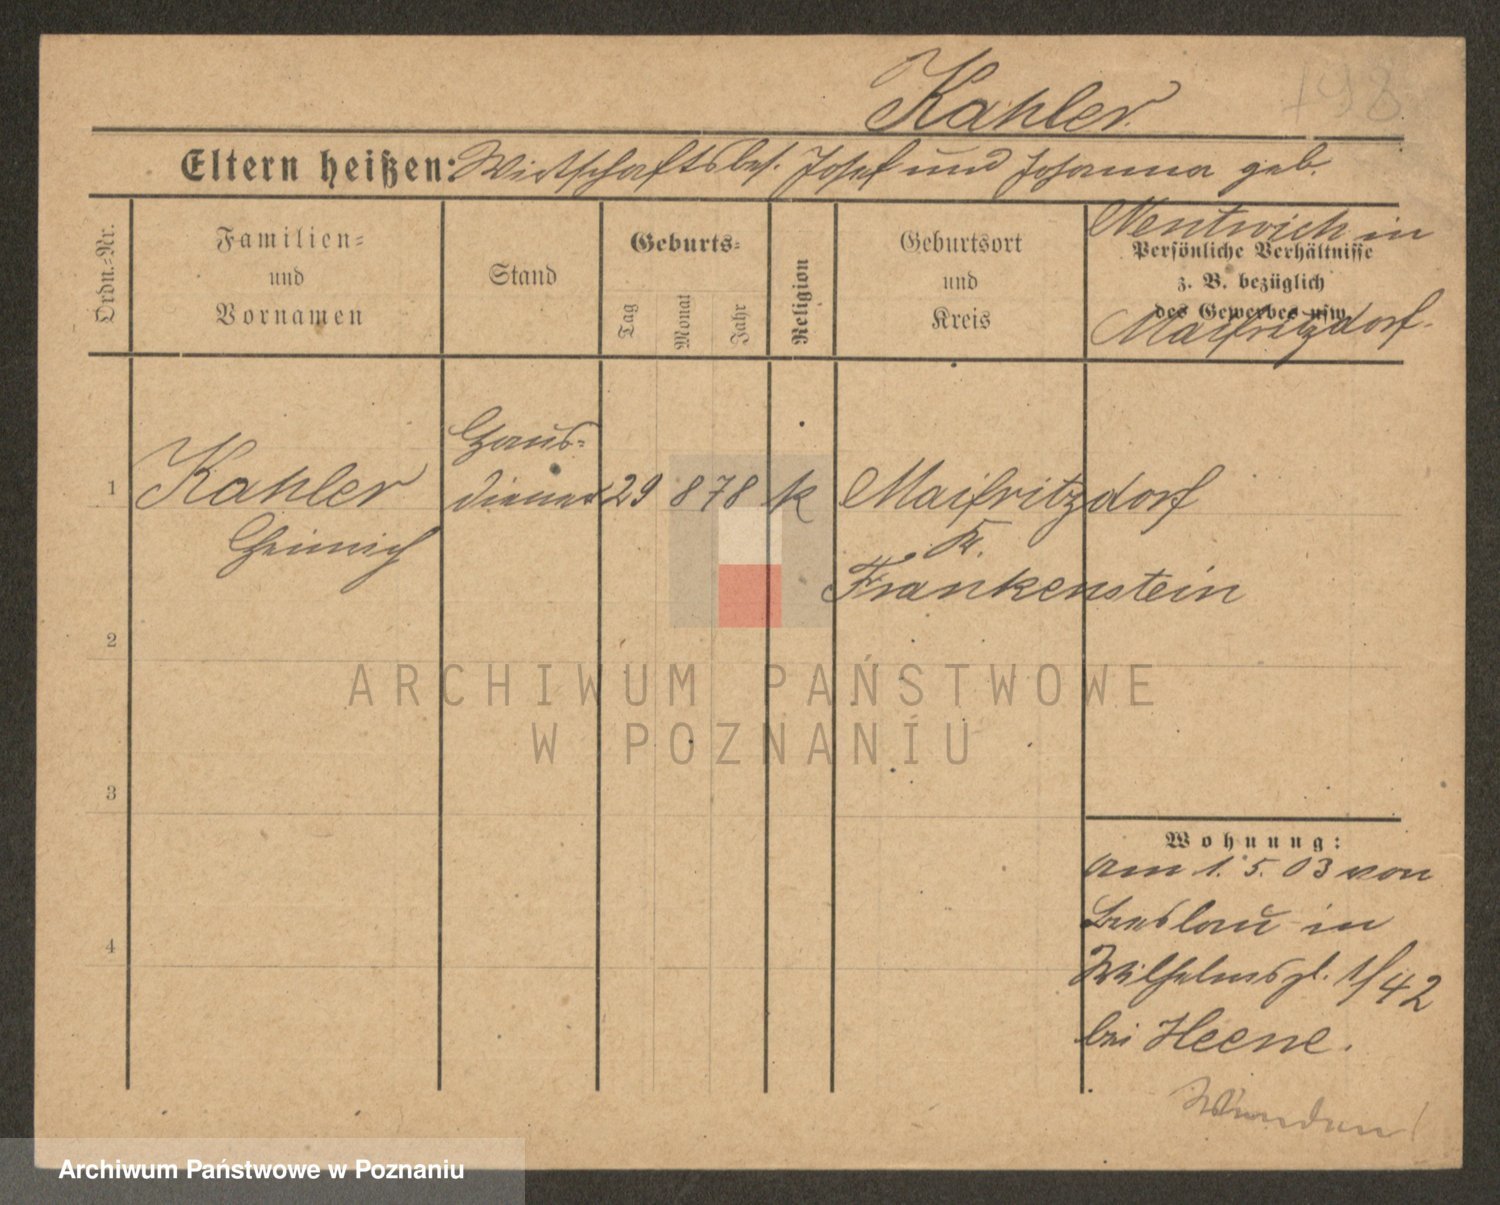 198
Kahler.
Eltern heißen: Wirtschaftsbes. Josef und Johanna geb.
Nentwich in
Maifritzdorf.
Ordn.-Nr.
Familien-
und
Vornamen
Stand
Geburts-
Tag
Monat
Jahr
Religion
Geburtsort
und
Kreis
Persönliche Verhältnisse
z. B. bezüglich
des Gewerbes usw.
1
Kahler
Heinrich
Haus-
diener
29
8
78
k
Maifritzdorf
Kr.
Frankenstein
2
3
4
Wohnung:
am 1. 5. 03 von
Breslau in
Wilhelmspl. 1/42
bei Heene.
ARCHIWUM PAŃSTWOWE
W POZNANIU
Archiwum Państwowe w Poznaniu